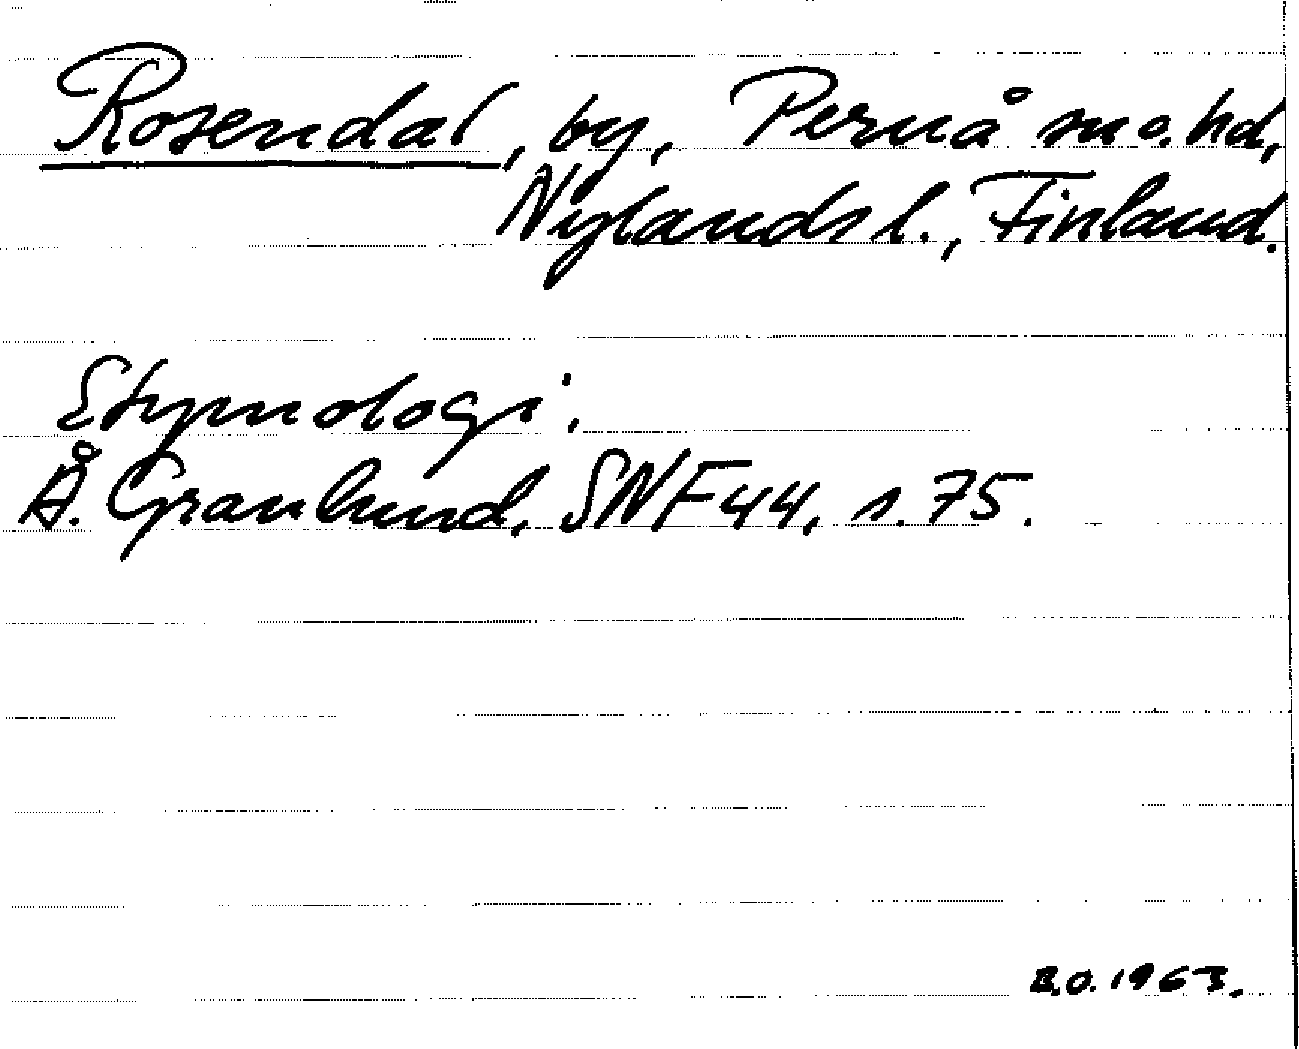 Rosendal, by, Pernå sn o. hd,
Nylands l., Finland.
Etymologi.
Å. Granlund, SNF 44, s. 75.
B.O. 1963.